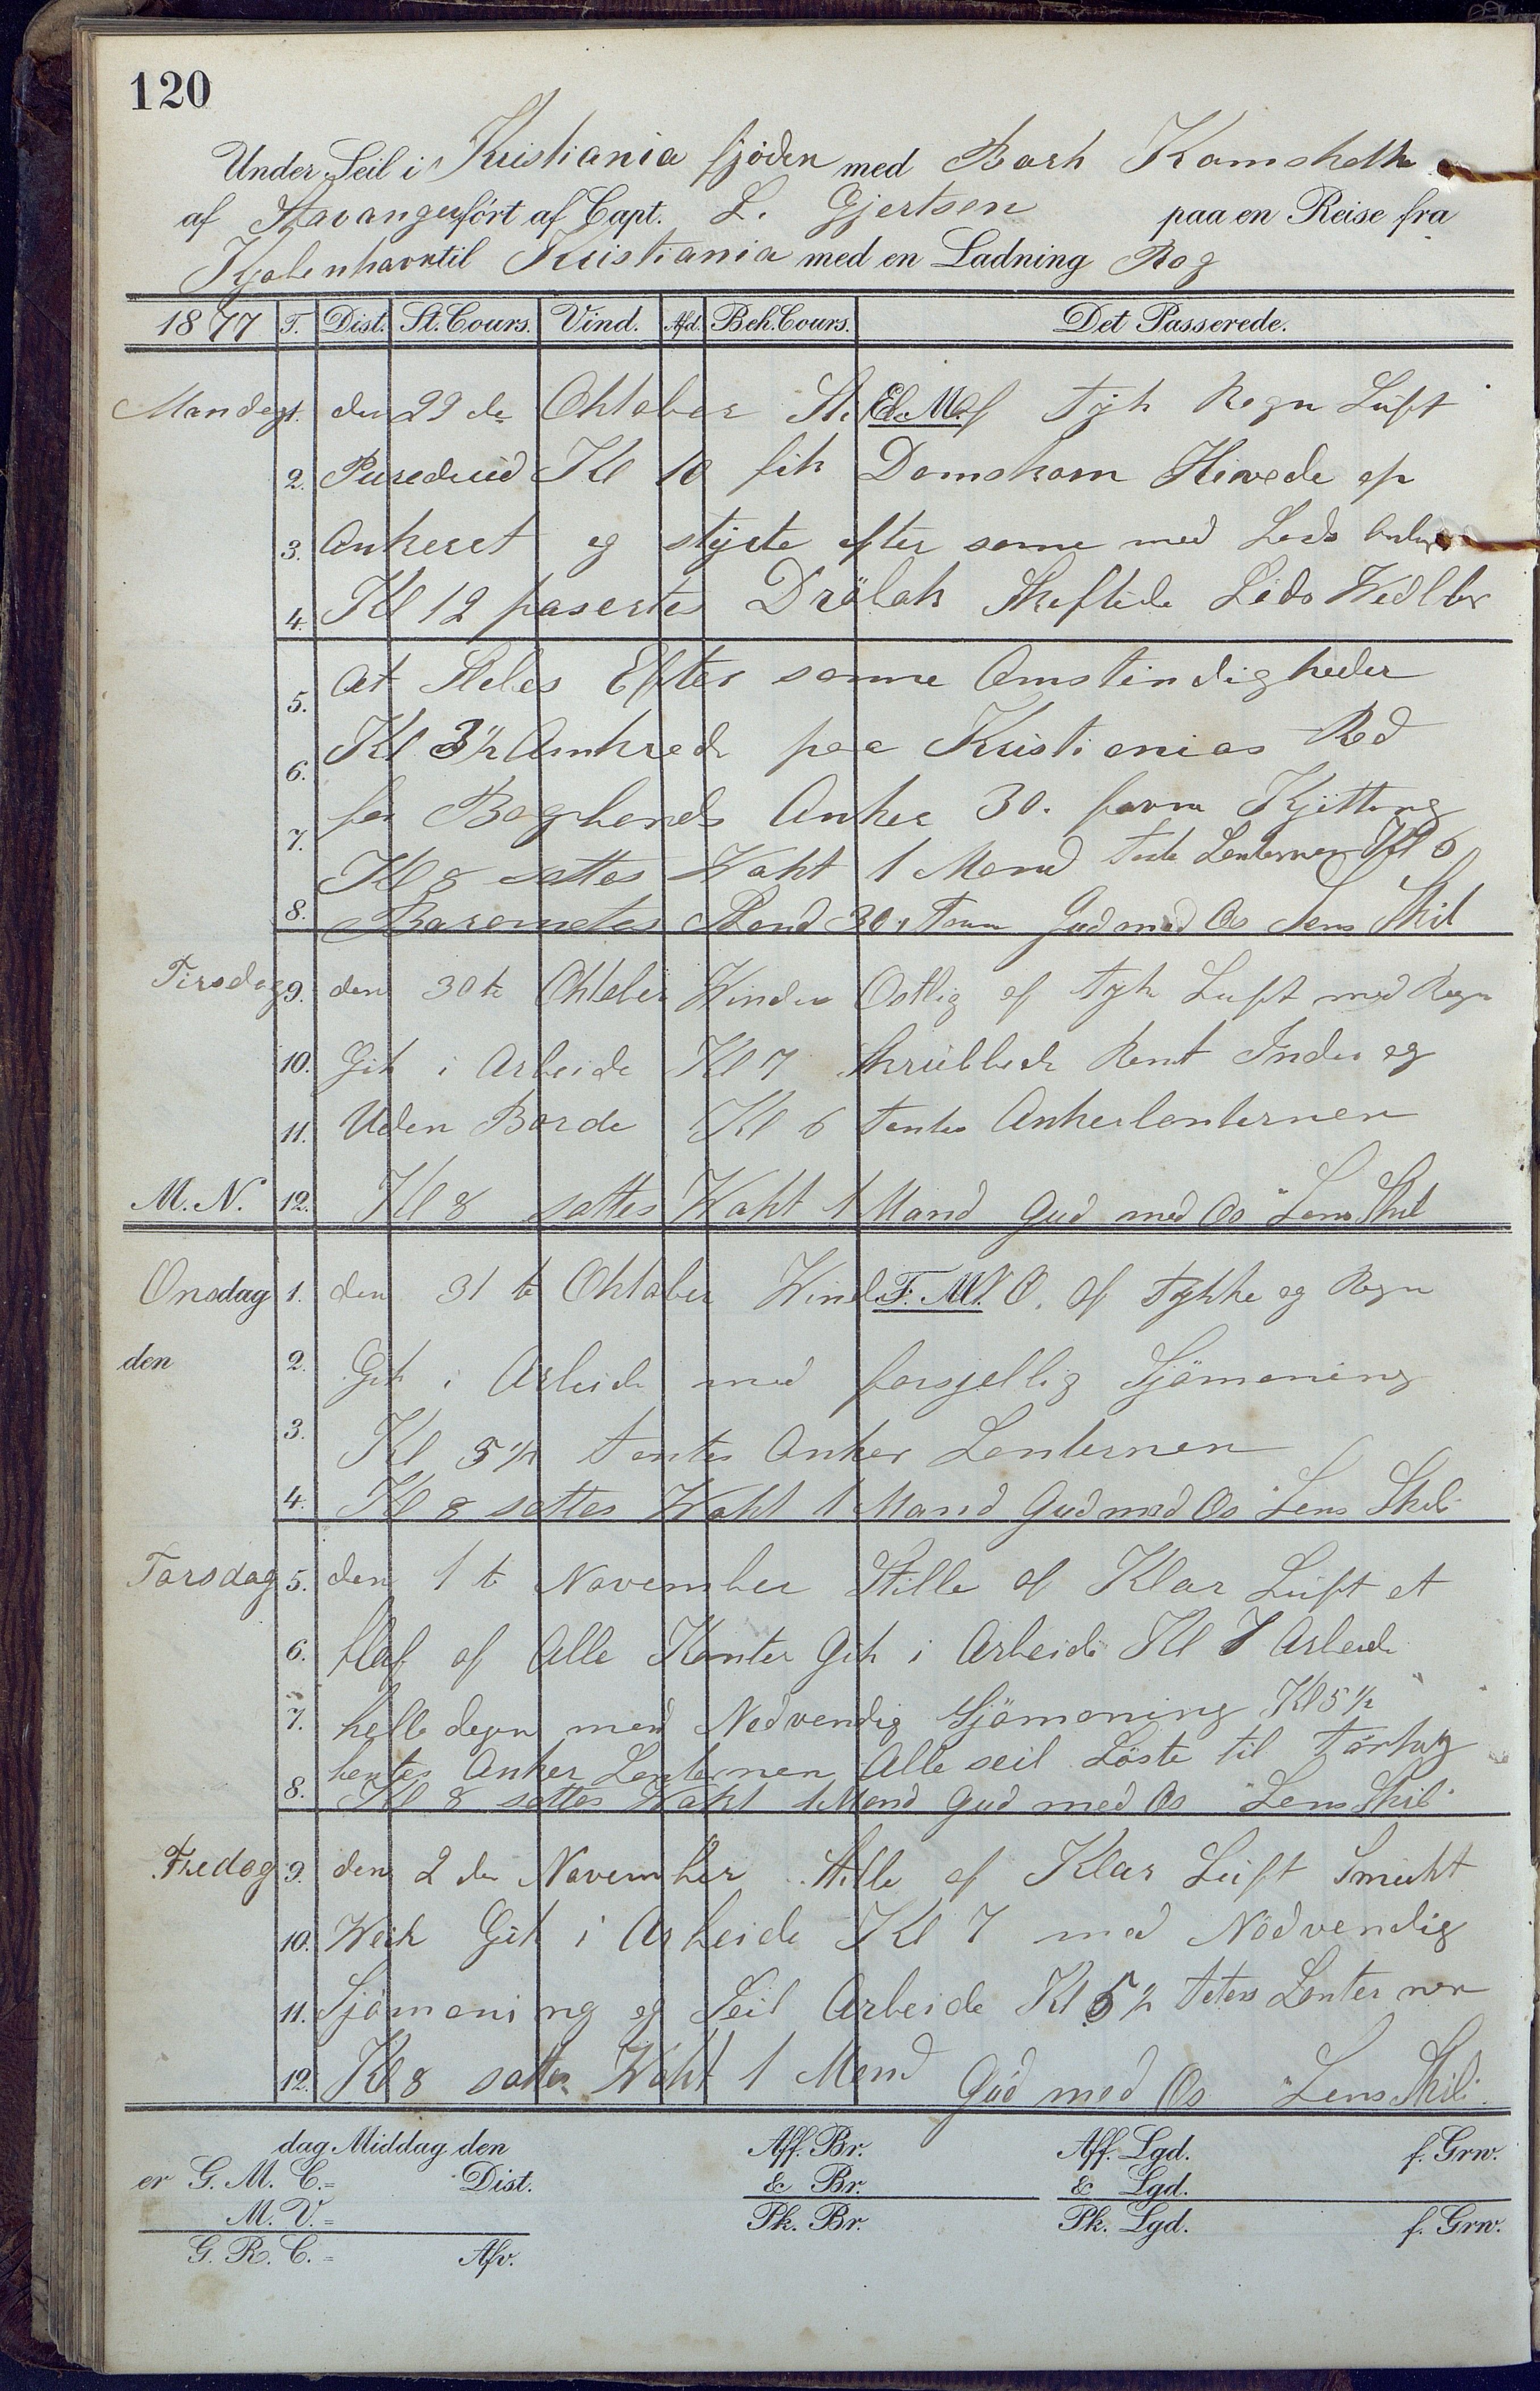 120
Under Seil i Kristiania fjöden med Bark Kamskelk
af Stavanger fört af Capt. L. Gjertsen paa en Reise fra
Kjobenhavn til Kristiania med en Ladning Rog
1877 T. Dist. St. Cours. Vind. Afd. Beh. Cours. Det Passerede.
Mandag 1. den 29 de Oktober St. E. M. of Tyk Regn Luft
2. Puredeud Kl 10 fik Damskom Hivede op
3. Ankeret og styrte efter some med Lods
4. Kl 12 pasertes Dröbak Skeftede Lods
5. at Seles Efter somme Omstendigheder
6. Kl 3½ Ankred paa Kristianias Red
7. for Bagbends Anker 30. favn Kjitting
Kl 8 sattes Wakt 1 Mand Lenternen Kl 6
8. Barometer Stand 30, Gud med Os Lens Skib
Tirsdag 9. den 30 te Oktober Winden Ostlig of Tyk Luft med Regn
10. Gik i Arbeide Kl 7 Skrubbede Rent Inden og
11. Uden Borde Kl 6 tentes Ankerlenternen
M. N. 12. Kl 8 sattes Wakt 1 Mand Gud med Os Lens Skib
Onsdag 1. den 31 te Oktober Wind F. M. N. O. of Tykke og Regn
den 2. Gik i Arbeide med forsjellig Sjömening
3. Kl 5½ tentes Anker Lenternen
4. Kl 8 sattes Wakt 1 Mand Gud med Os Lens Skib
Torsdag 5. den 1 te November Stille of Klar Luft et
6. flaf of Alle Kanter Gik i Arbeide Kl 7 Arbeide
7. helle degn med Nedvendig Sjömening Kl 5½
tentes Anker Lenternen Alle seil Löste til Törhug
8. Kl 8 sattes Wakt 1 Mand Gud med Os Lens Skib
Fredag 9. den 2 den November Stille of Klar Luft Smukt
10. Weik Gik i Arbeide Kl 7 med Nödvendig
11. Sjömening og Seil Arbeide Kl 5½ tetes Lenternen
12. Kl 8 sattes Wakt 1 Mand Gud med Os Lens Skib
dag Middag den Aff. Br. Aff. Lgd. f. Grw.
er G. M. C. = Dist. & Br. & Lgd.
M. V. = Pk. Br. Pk. Lgd. f. Grw.
G. R. C. = Afv.